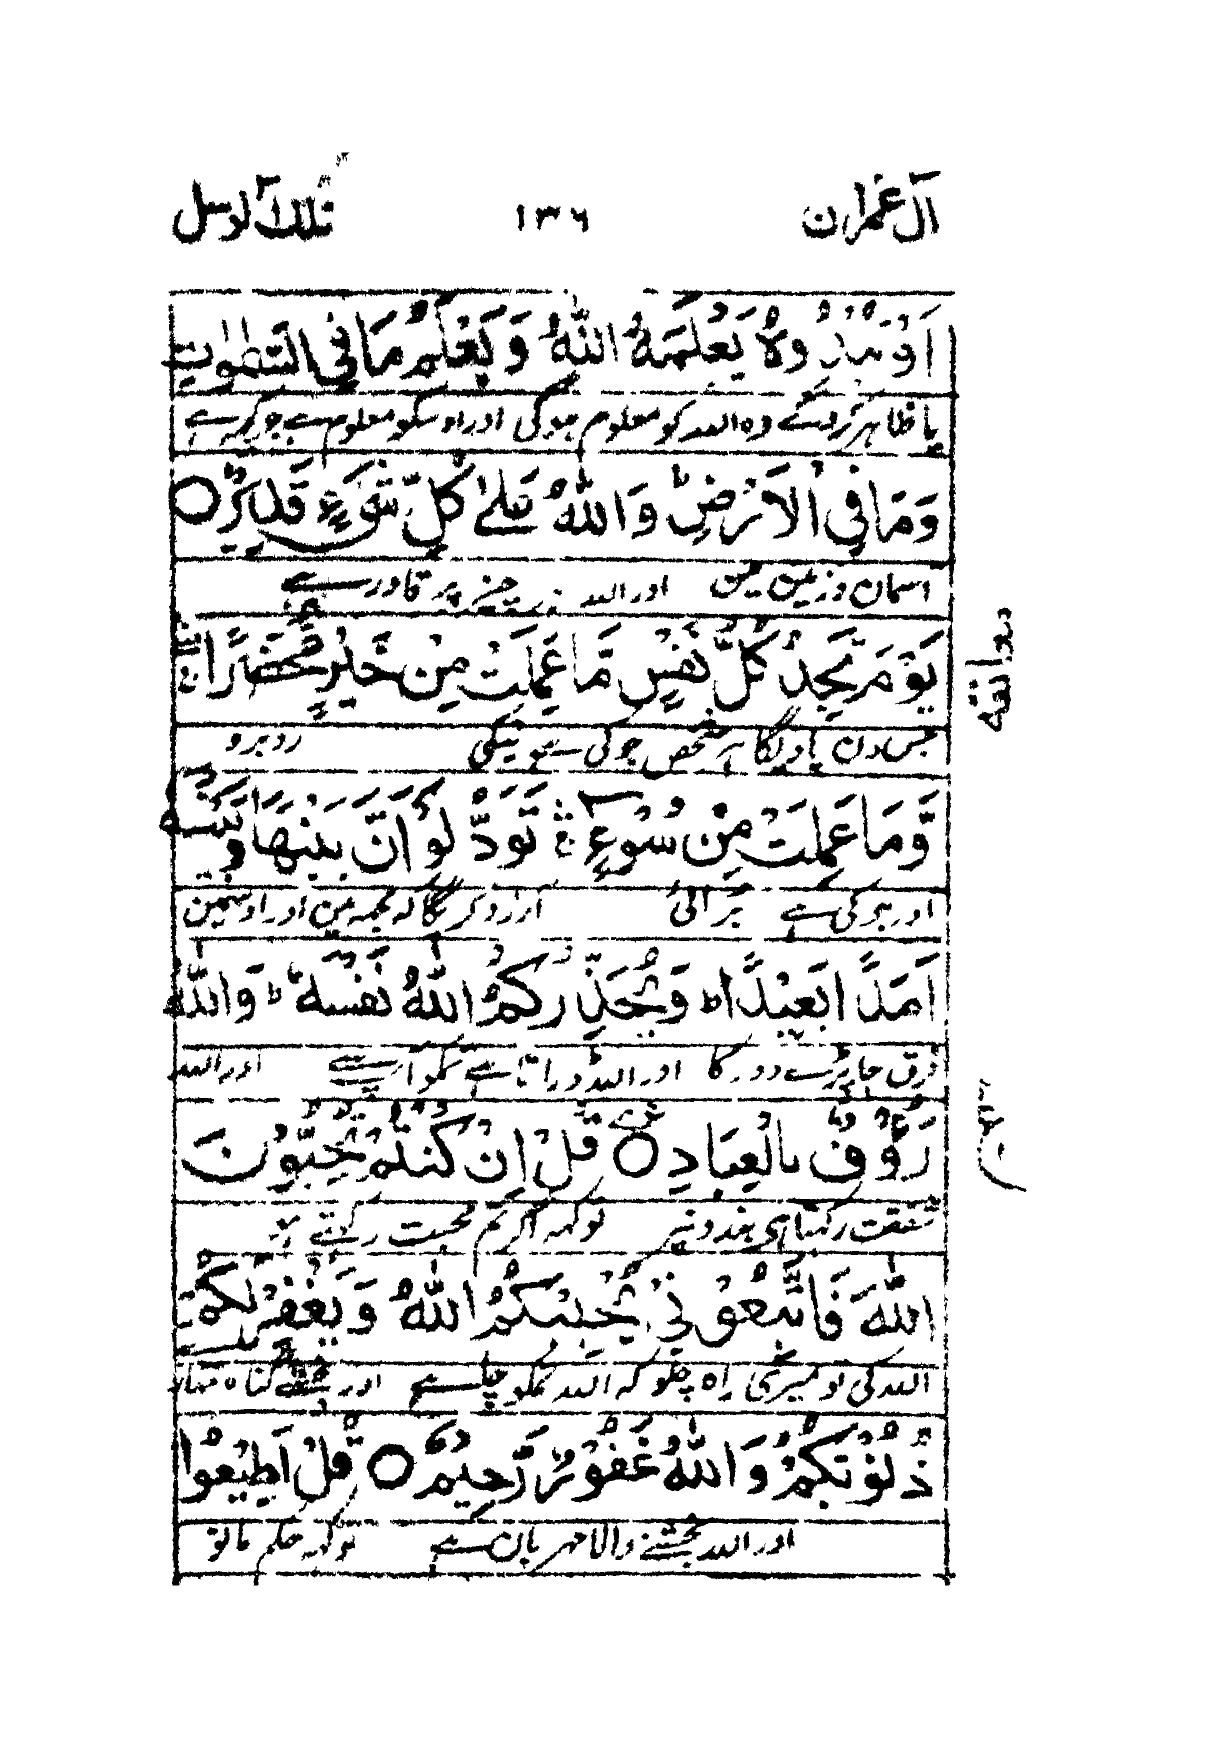 آل عمران ١٣٦ تلك الرسل
اَوْ تُبْدُوْهُ يَعْلَمْهُ اللّٰهُ وَيَعْلَمُ مَا فِي السَّمٰوٰتِ
یا ظاہر کروگے وہ اللہ کو معلوم ہوگی اور اوسکو معلوم ہے جو کچھ ہے
وَمَا فِي الْاَرْضِ ط وَاللّٰهُ عَلٰى كُلِّ شَيْءٍ قَدِيْرٌ ○
اسمان وزمین مین اور اللہ ہر چیز پر قادر ہے
يَوْمَ تَجِدُ كُلُّ نَفْسٍ مَّا عَمِلَتْ مِنْ خَيْرٍ مُّحْضَرًا
جس دن پاویگا ہر شخص جو کی ہے نیکی روبرو
وَّمَا عَمِلَتْ مِنْ سُوْٓءٍ تَوَدُّ لَوْ اَنَّ بَيْنَهَا وَبَيْنَهٗ
اور جو کی ہے برائی آرزو کریگا کہ مجھہ مین اور اوسمین
اَمَدًا بَعِيْدًا ط وَيُحَذِّرُكُمُ اللّٰهُ نَفْسَهٗ ط وَاللّٰهُ
فرق جا پڑے دور کا اور اللہ ڈراتا ہے تمکو آپ سے اور اللہ
رَءُوْفٌ بِالْعِبَادِ ○ قُلْ اِنْ كُنْتُمْ تُحِبُّوْنَ
شفقت رکھتا ہی بندونپر تو کہہ اگر تم محبت رکھتے ہو
اللّٰهَ فَاتَّبِعُوْنِيْ يُحْبِبْكُمُ اللّٰهُ وَيَغْفِرْ لَكُمْ
اللہ کی تو میری راہ چلو کہ اللہ تمکو چاہے اور بخشے گناہ تمہارے
ذُنُوْبَكُمْ ط وَاللّٰهُ غَفُوْرٌ رَّحِيْمٌ ○ قُلْ اَطِيْعُوا
اور اللہ بخشنے والا مہربان ہے تو کہہ حکم مانو